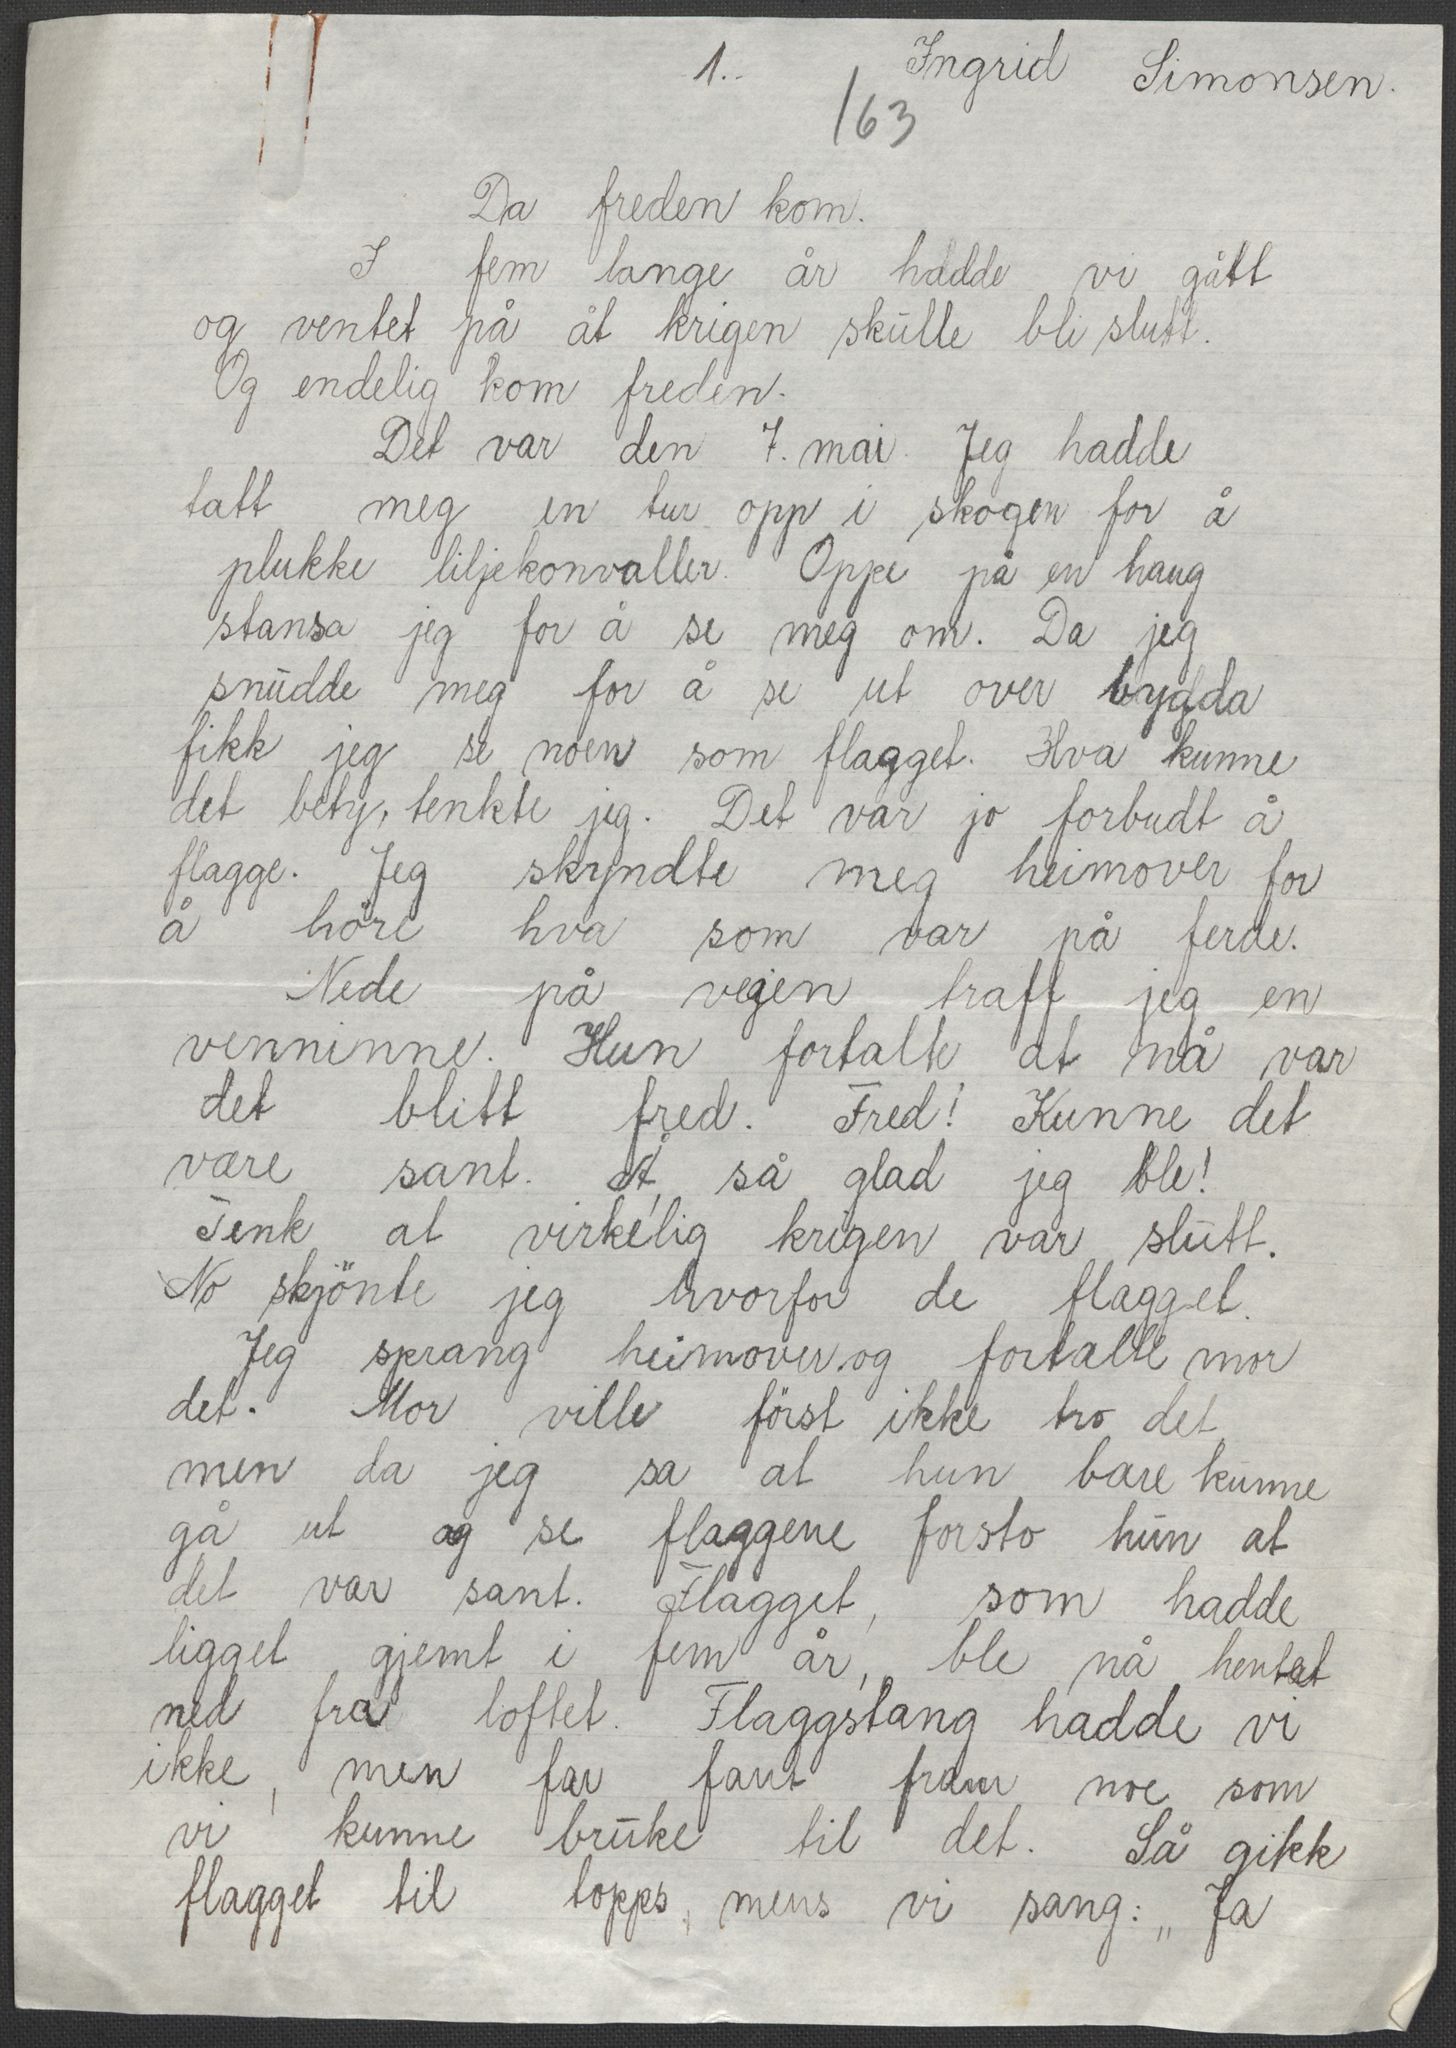 1.. Ingrid Simonsen.
163
Da freden kom.
I fem lange år hadde vi gått
og ventet på at krigen skulle bli slutt.
Og endelig kom freden.
Det var den 7. mai. Jeg hadde
tatt meg en tur opp i skogen for å
plukke liljekonvaller. Oppe på en haug
stansa jeg for å se meg om. Da jeg
snudde meg for å se ut over bygda
fikk jeg se noen som flagget. Hva kunne
det bety, tenkte jeg. Det var jo forbudt å
flagge. Jeg skyndte meg heimover for
å höre hva som var på ferde.
Nede på vejen traff jeg en
venninne. Hun fortalte at nå var
det blitt fred. Fred! Kunne det
være sant. Å, så glad jeg ble!
Tenk at virkelig krigen var slutt.
No skjönte jeg hvorfor de flagget.
Jeg sprang heimover og fortalte mor
det. Mor ville först ikke tro det,
men da jeg sa at hun bare kunne
gå ut og se flaggene forsto hun at
det var sant. Flagget, som hadde
ligget gjemt i fem år, ble nå hentet
ned fra loftet. Flaggstang hadde vi
ikke, men far fant fram noe som
vi kunne bruke til det. Så gikk
flagget til topps, mens vi sang: „Ja